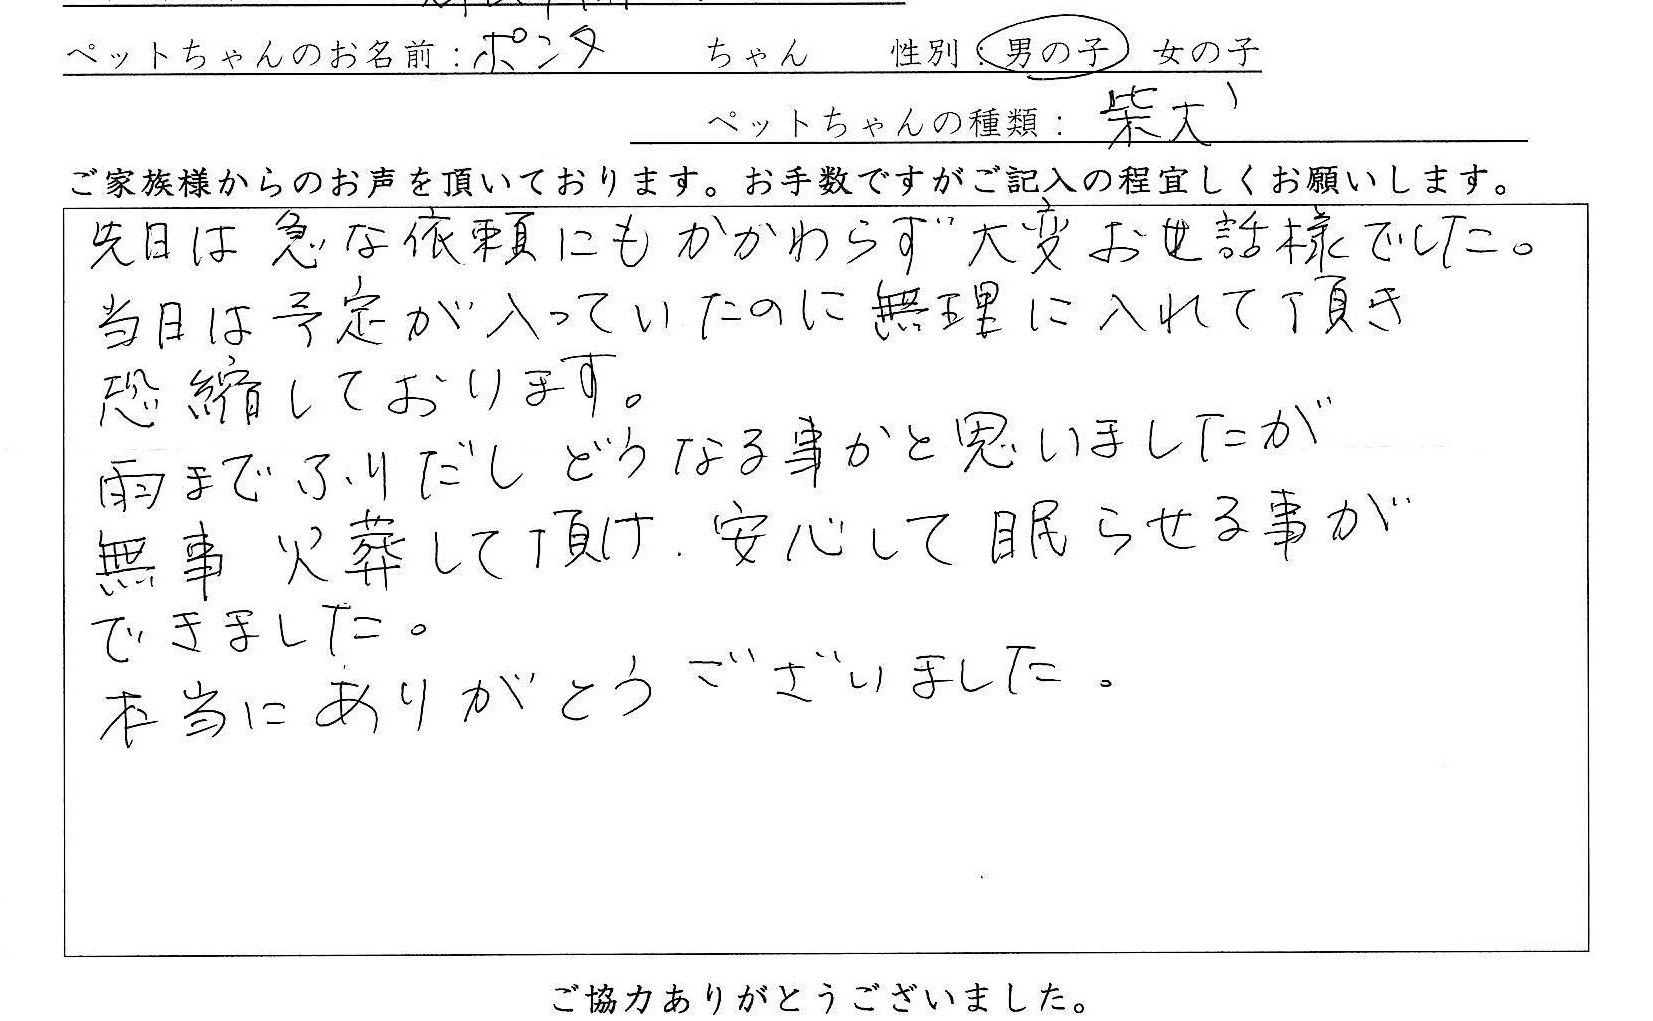 ペットちゃんのお名前：ポンタ ちゃん 性別：男の子 女の子
ペットちゃんの種類：柴犬
ご家族様からのお声を頂いております。お手数ですがご記入の程宜しくお願いします。
先日は急な依頼にもかかわらず大変お世話様でした。
当日は予定が入っていたのに無理に入れて頂き
恐縮しております。
雨までふりだしどうなる事かと思いましたが
無事火葬して頂け、安心して眠らせる事が
できました。
本当にありがとうございました。
ご協力ありがとうございました。